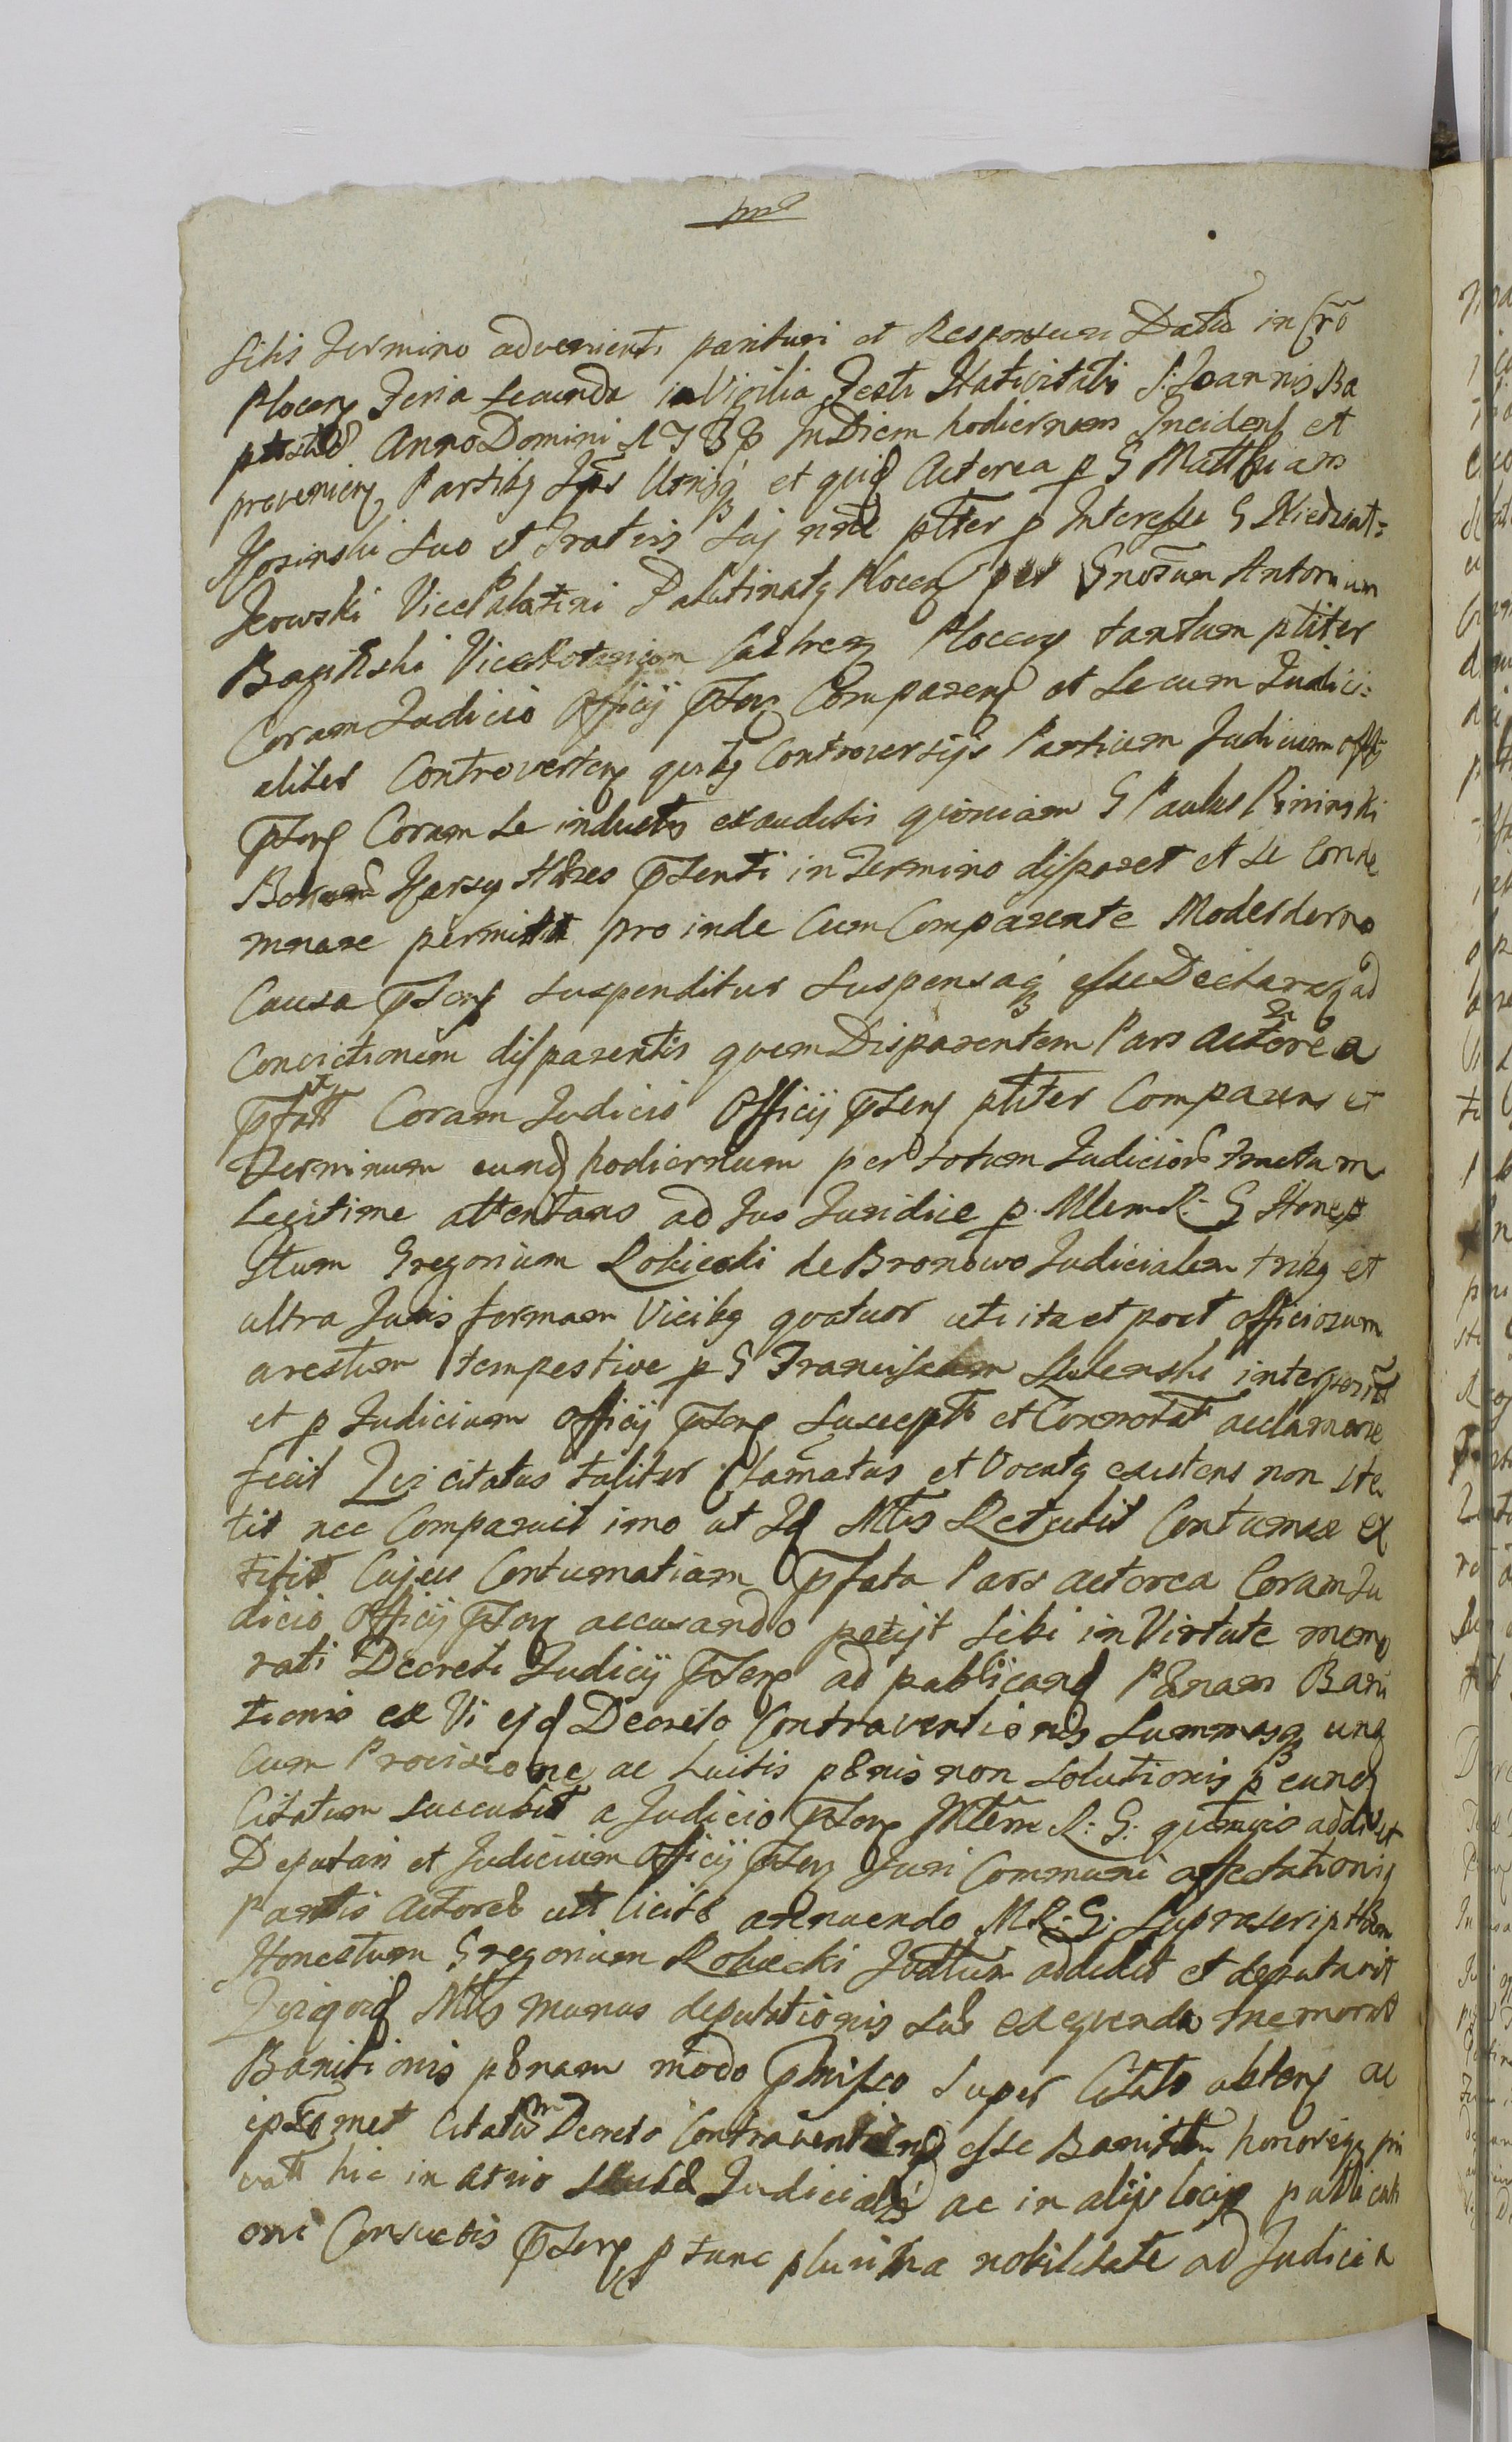 sitis Termino advenienti parituri et Responsuri Datũ in Crõ
Plocen Feria secunda in Vigilia Festi Nativitatis S: Joannis Ba
Anno Domini 1788 In Diem hodiernum Inciden et
provenien Partibq Ipsis Utrisq et quid Actorea p G Matthiam
suo et Fratris sui nñe ptter p Interesse G Niedział=
kowski VicePalatini Palatinatq Plocen per Gnosum Antonium
ViceNotarium Castren Plocen tantum ptiter
Coram Judicio Officij pñsen Comparen et secum Judici=
aliter Controverten quibq Controversijs Partium Judicium offij
pñsen Coram se inductis exauditis quoniam G Paulus
pñsenti in Termino disparet et se Conde
mnare permittit pro inde Cum Comparente Moderderno
Causa pñsen suspenditur suspensaq esse Declarat ad
Convictionem disparentis quem Disparentem Pars actorea
pfatt Coram Judicio Officij pñsen ptiter Comparens et
Terminum eund hodiernum per totum Judicior tractum
Legitime attentans ad Jus Juridice p. Mlem R: G Hone
stum Gregorium Robiecki de Bronowo Judicialem tribq et
ultra Juris formam Vicibq quatuor uti ita et post officiosum
arestum tempestive p G Franciscum interposit
et p Judicium officij pñsen suscept et Connotat acclamare
fecit Qui citatus taliter Clamatus et Vocatq existens non ste
tit nec Comparuit imo ut Id Mtis Retulit Contumax ex
titit Cujus Contumatiam pfata Pars actorea Coram Ju
dicio Officij pñsen accusando petijt sibi in Virtute memo
rati Decreti Judicij pñsen ad publicand Pænam Bani
tionis ex Vi ejd Decreto Contraventionis Summasq una
Cum Provisione ac Luitis pænis non solutionis p eund
Citatum succubit a Judicio pñsen Mlem R: G: quamvis addi et
Deputari et Judicium Officij pñsen Juri Communi affectationiq
Partis Actoreæ utt licitæ annuendo M R: G: suprascriptum
Honestum Gregorium Robiecki addidit et deputavit
Quiquid Mtis munus deputationis suæ exequendo memorat
Banitionis pænam modo pmisso super Citato obten ac
ipsummet Citatum Decreto Contraventionis esse Banitum honoreq pri
vatt hic in atrio Judiciali ac in alijs locis publicati
oni Consuetis pñsen p tunc plurima nobilitate ad Judicia